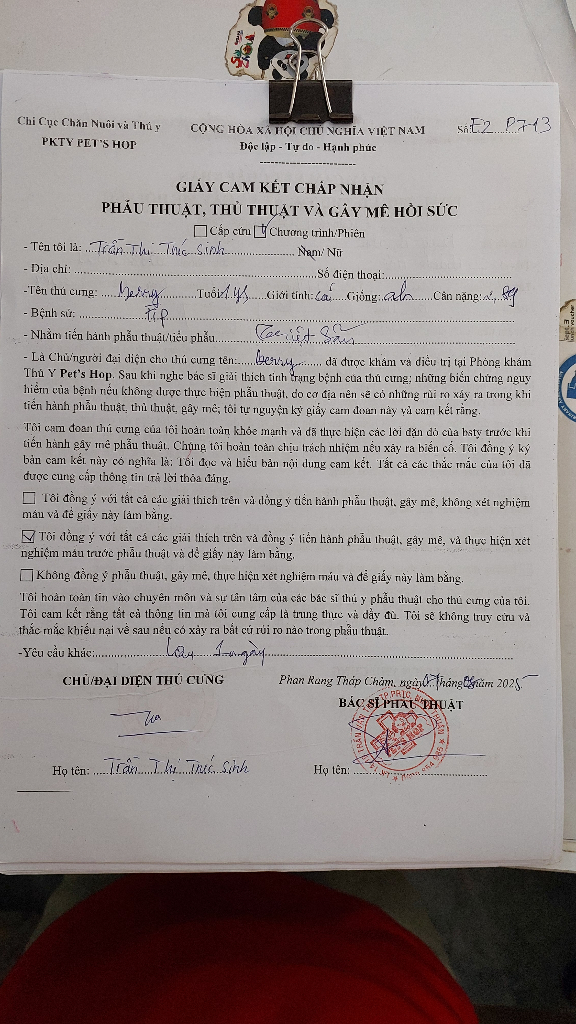 Chi Cục Chăn Nuôi và Thú y
CỘNG HÒA XÃ HỘI CHỦ NGHĨA VIỆT NAM
Số: E2 P7-13
PKTY PET'S HOP
Độc lập - Tự do - Hạnh phúc
GIẤY CAM KẾT CHẤP NHẬN
PHẪU THUẬT, THỦ THUẬT VÀ GÂY MÊ HỒI SỨC
Cấp cứu Chương trình/Phiên
- Tên tôi là: Trần Thị Trúc Sinh Nam/ Nữ
- Địa chỉ: Số điện thoại:
-Tên thú cưng: Berry Tuổi: 1ys Giới tính: cái Giống: aln Cân nặng:
- Bệnh sử:
- Nhằm tiến hành phẫu thuật/tiểu phẫu Triệt Sản
- Là Chủ/người đại diện cho thú cưng tên: berry đã được khám và điều trị tại Phòng khám
Thú Y Pet's Hop. Sau khi nghe bác sĩ giải thích tình trạng bệnh của thú cưng; những biến chứng nguy
hiểm của bệnh nếu không được thực hiện phẫu thuật, do cơ địa nên sẽ có những rủi ro xảy ra trong khi
tiến hành phẫu thuật, thủ thuật, gây mê; tôi tự nguyện ký giấy cam đoan này và cam kết rằng.
Tôi cam đoan thú cưng của tôi hoàn toàn khỏe mạnh và đã thực hiện các lời dặn dò của bsty trước khi
tiến hành gây mê phẫu thuật. Chúng tôi hoàn toàn chịu trách nhiệm nếu xảy ra biến cố. Tôi đồng ý ký
bản cam kết này có nghĩa là: Tôi đọc và hiểu bản nội dung cam kết. Tất cả các thắc mắc của tôi đã
được cung cấp thông tin trả lời thỏa đáng.
Tôi đồng ý với tất cả các giải thích trên và đồng ý tiến hành phẫu thuật, gây mê, không xét nghiệm
máu và để giấy này làm bằng.
Tôi đồng ý với tất cả các giải thích trên và đồng ý tiến hành phẫu thuật, gây mê, và thực hiện xét
nghiệm máu trước phẫu thuật và để giấy này làm bằng.
Không đồng ý phẫu thuật, gây mê, thực hiện xét nghiệm máu và để giấy này làm bằng.
Tôi hoàn toàn tin vào chuyên môn và sự tận tâm của các bác sĩ thú y phẫu thuật cho thú cưng của tôi.
Tôi cam kết rằng tất cả thông tin mà tôi cung cấp là trung thực và đầy đủ. Tôi sẽ không truy cứu và
thắc mắc khiếu nại về sau nếu có xảy ra bất cứ rủi ro nào trong phẫu thuật.
-Yêu cầu khác: ngày
CHỦ/ĐẠI DIỆN THÚ CƯNG
Phan Rang Tháp Chàm, ngày 07 tháng 08 năm 2025
BÁC SĨ PHẪU THUẬT
Họ tên: Trần Thị Trúc Sinh
Họ tên: